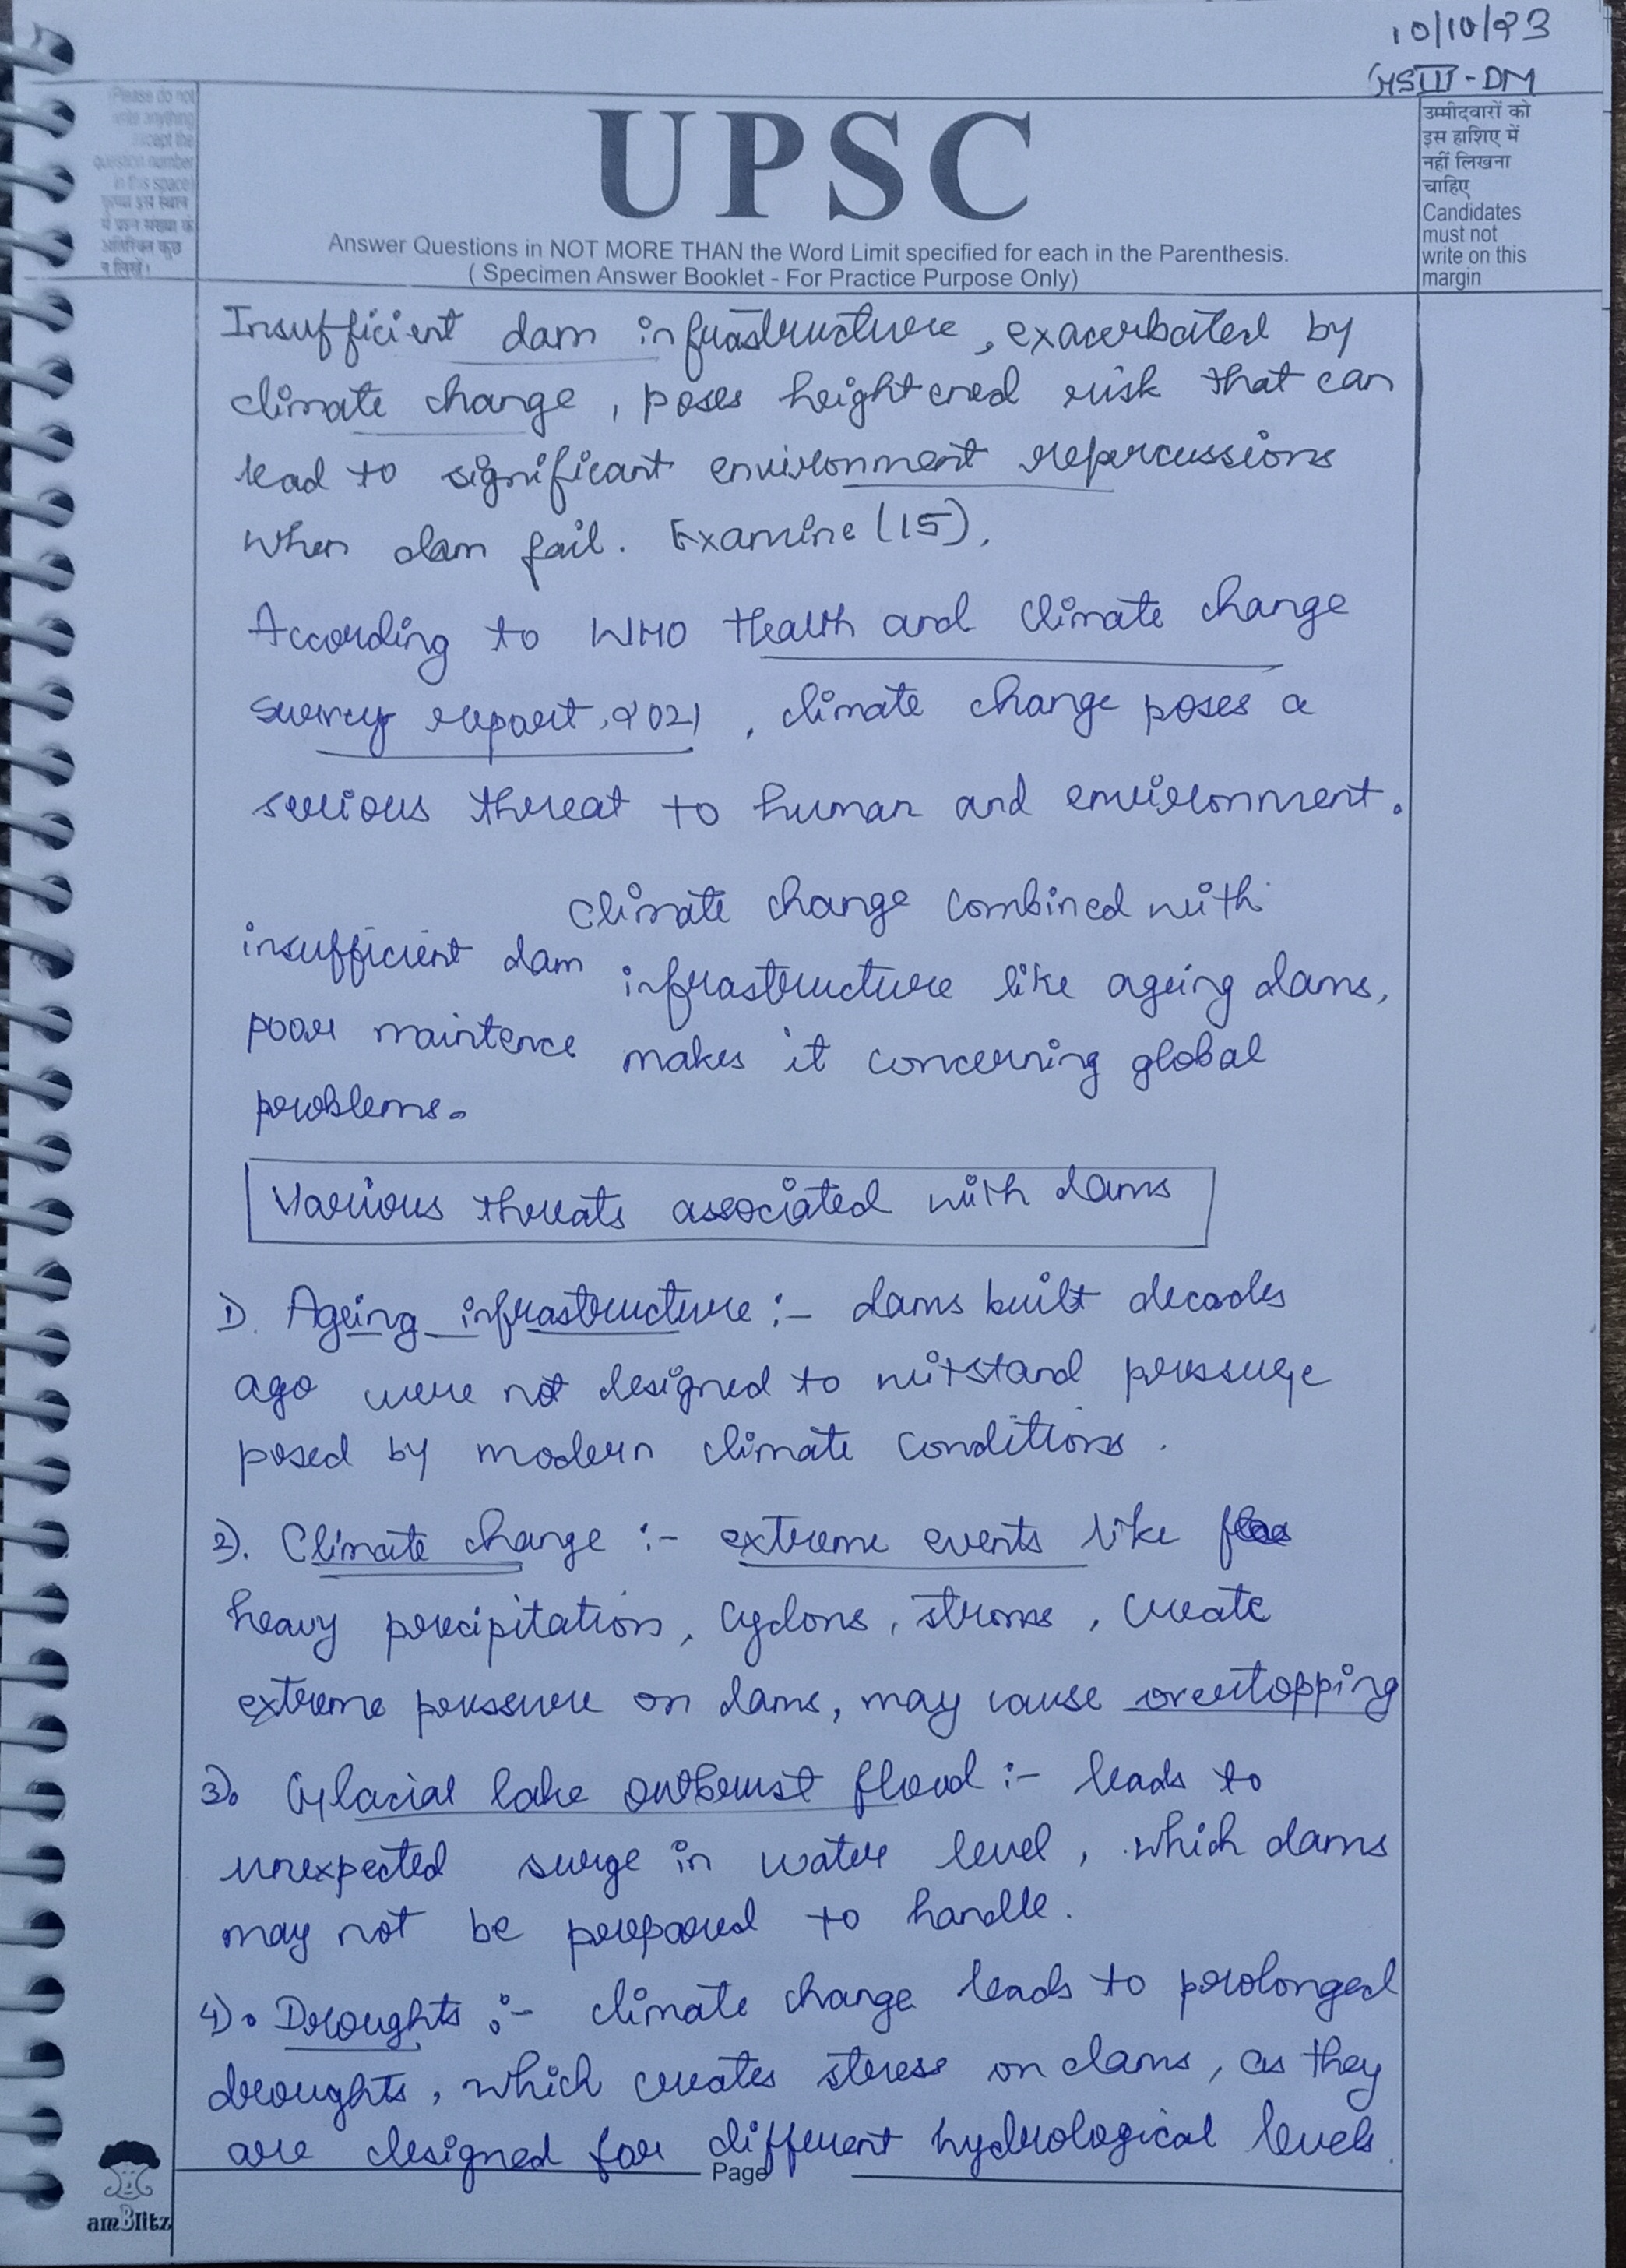 10/10/23
GSIII-DM
(Please do not
write anything
except the
question number
in this space)
कृपया इस स्थान
में प्रश्न संख्या के
अतिरिक्त कुछ
न लिखें।
UPSC
Answer Questions in NOT MORE THAN the Word Limit specified for each in the Parenthesis.
( Specimen Answer Booklet - For Practice Purpose Only)
उम्मीदवारों को
इस हाशिए में
नहीं लिखना
चाहिए
Candidates
must not
write on this
margin
Insufficient dam infrastructure, exacerbated by
climate change, poses heightened risk that can
lead to significant environment repercussions
when dam fail. Examine (15).
According to WHO Health and Climate change
survey report, 2021, climate change poses a
serious threat to human and environment.
Climate change combined with
insufficient dam infrastructure like ageing dams,
poor maintence makes it concerning global
problems.
Various threats associated with dams
1). Ageing infrastructure :- dams built decades
ago were not designed to witstand pressure
posed by modern climate conditions.
2). Climate change :- extreme events like
heavy precipitation, cyclons, stroms, create
extreme pressure on dams, may cause overtopping
3). Glacial lake outburst flood :- leads to
unexpected surge in water level, which dams
may not be prepared to handle.
4). Droughts :- climate change leads to prolonged
droughts, which creates stress on dams, as they
are designed for different hydrological levels.
Page
amBlitz